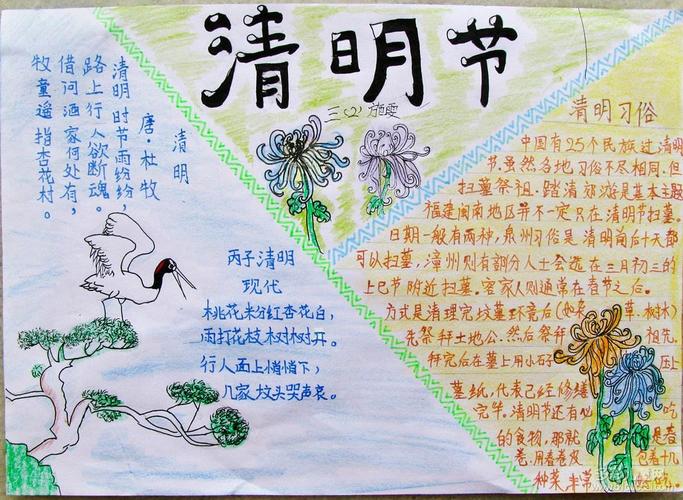 清明节
三(2) 施雯
清明
唐·杜牧
清明时节雨纷纷，
路上行人欲断魂。
借问酒家何处有，
牧童遥指杏花村。
丙子清明
现代
桃花米分红杏花白，
雨打花枝树树开。
行人面上悄悄下，
几家坟头哭声哀。
清明习俗
中国有25个民族过清明
节。虽然各地习俗不尽相同，但
扫墓祭祖、踏清郊游是基本主题
福建闽南地区并不一定只在清明节扫墓。
日期一般有两种，泉州习俗是清明前后十天都
可以扫墓，漳州则有部分人士会选在三月初三的
上巳节附近扫墓。客家人则通常在春节之后。
方式是清理完坟墓环境后(如来 草、树木)
先祭拜土地公，然后祭拜 祖先。
拜完后在墓上用小石子 压上
墓纸，代表已经修缮
完毕。清明节还有必 吃
的食物，那就 是春
卷，用春卷皮 包着十几
种菜，非常 好吃。